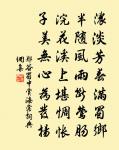 濃淡芳春滿蜀鄉
半隨風雨斷鶯腸
浣花溪上堪惆悵
子美無心為發揚
鄭谷蜀中賞海棠詩詞典
網集